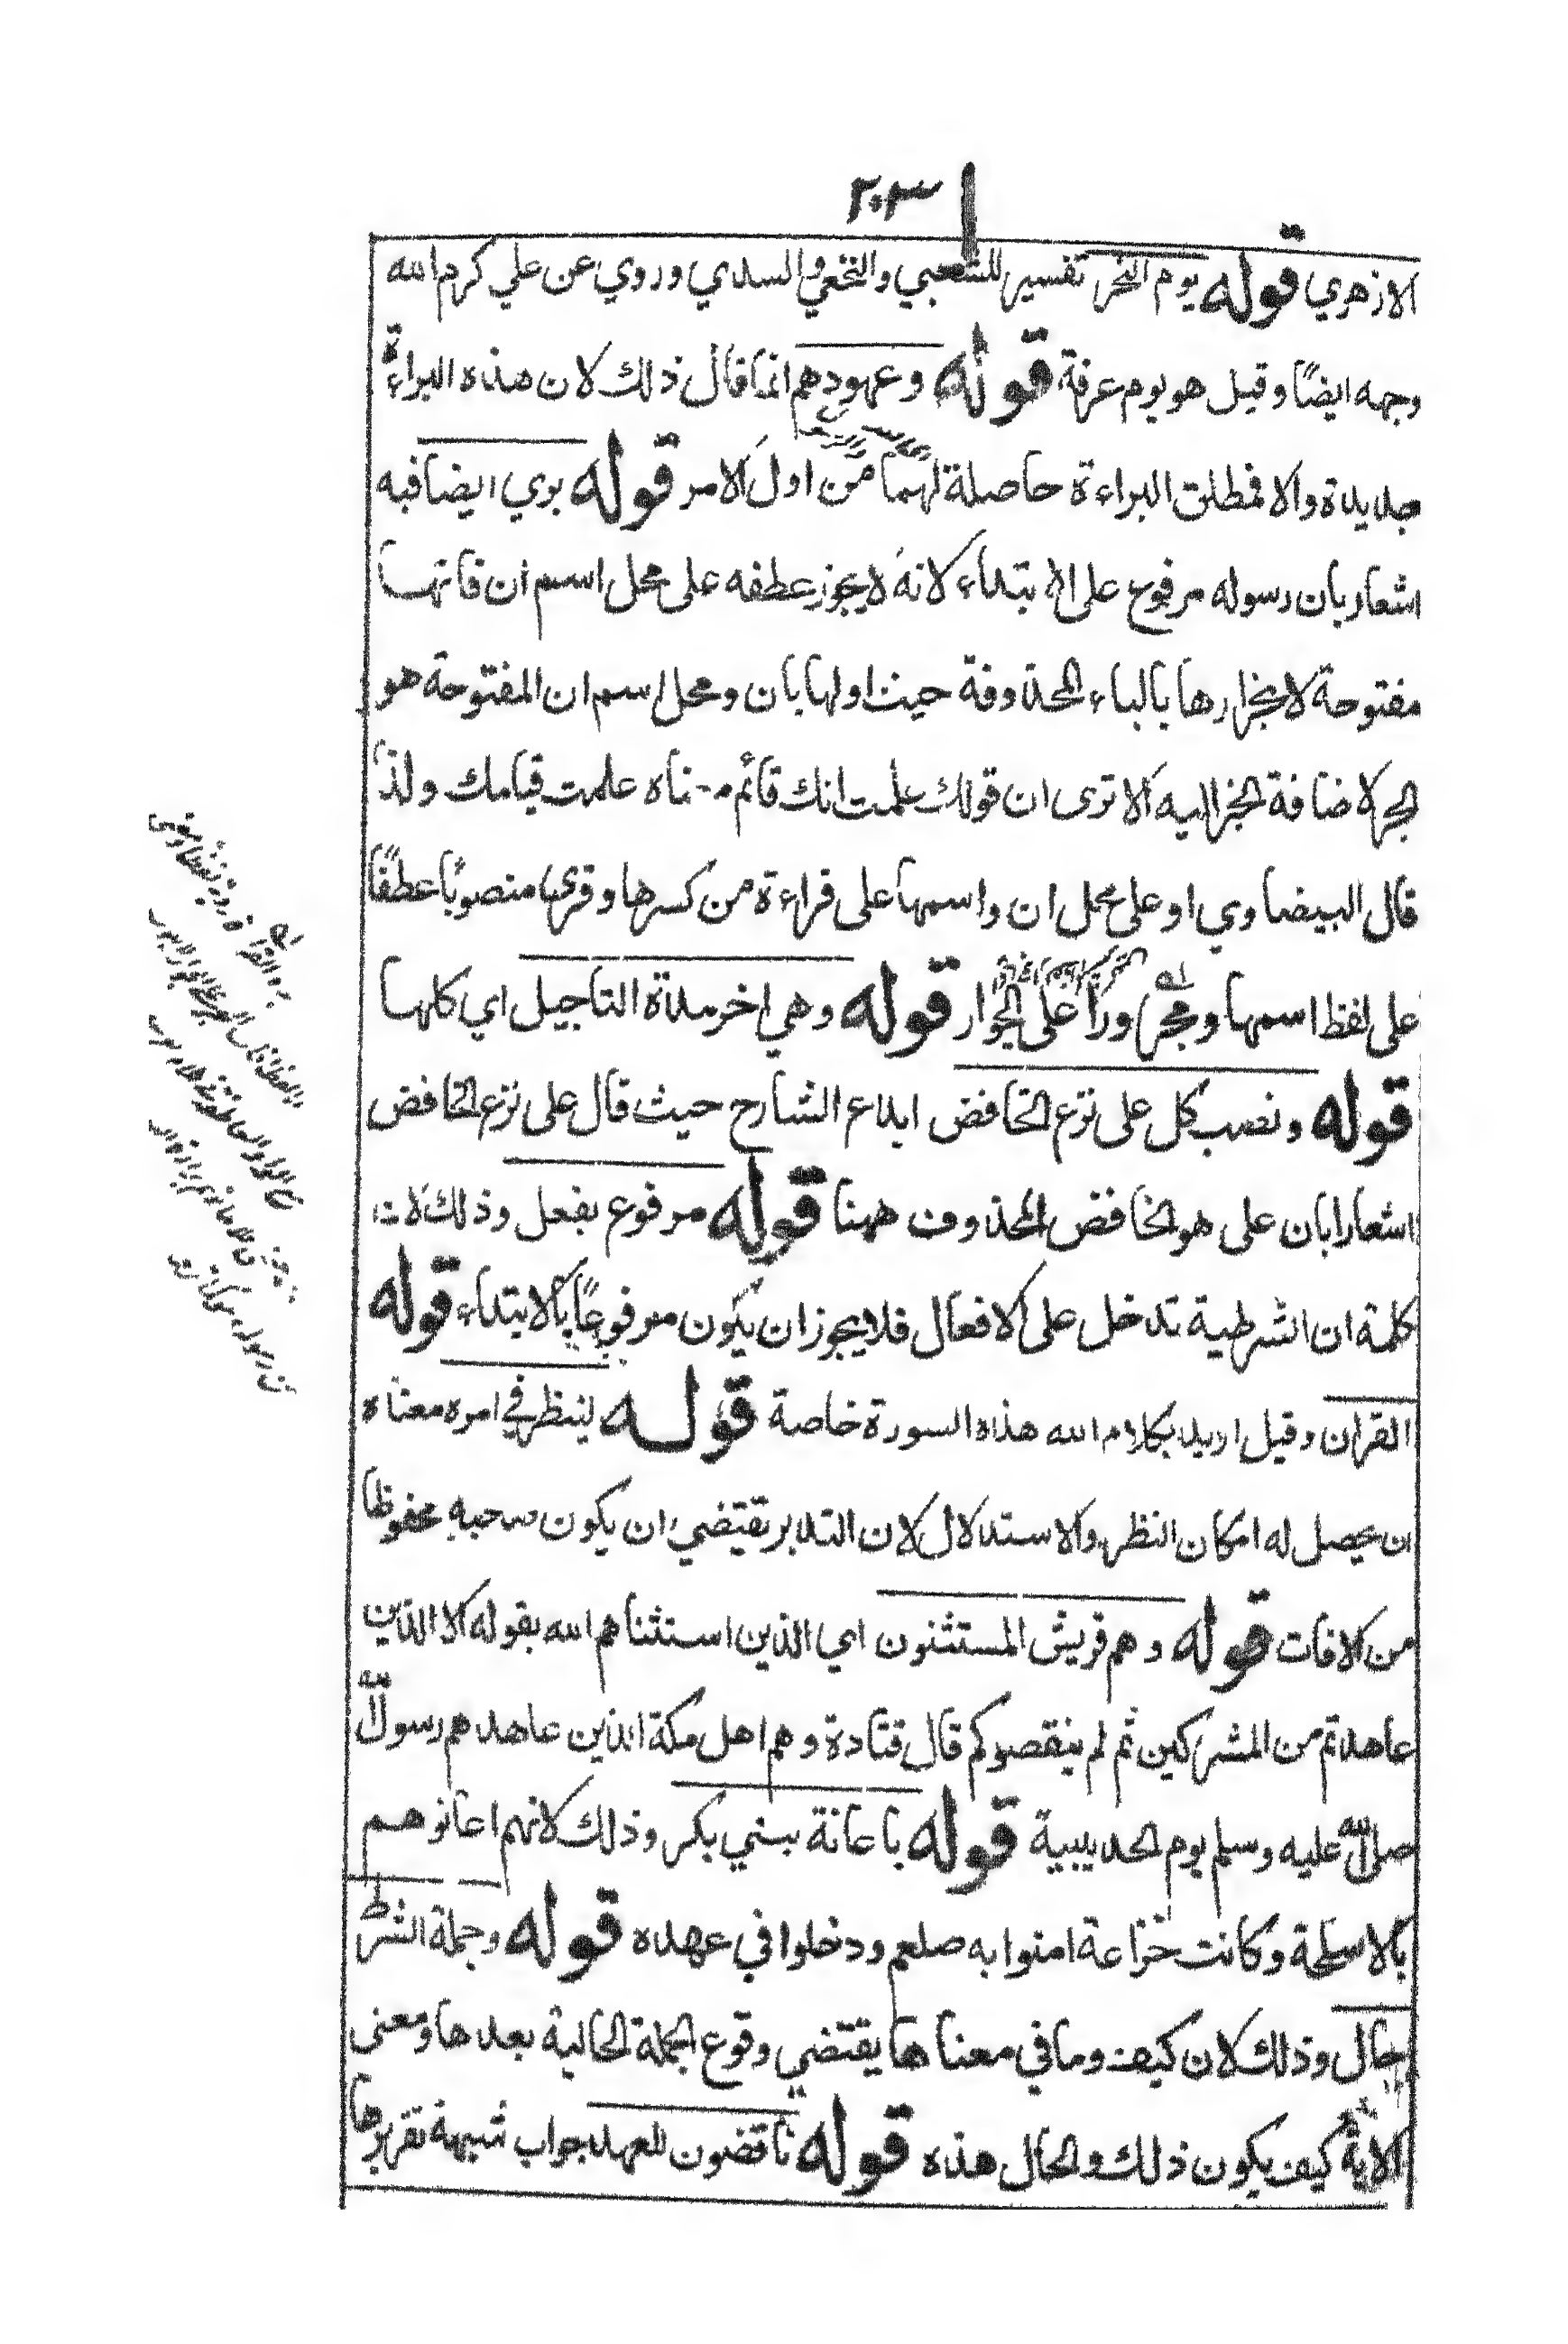 ٢٠٣
الازهري قوله يوم النحر تفسير للشعبي والنخعي والسدي وروي عن علي كرم الله
وجهه ايضًا وقيل هو يوم عرفة قوله وعهودهم انما قال ذلك لان هذه البراءة
جديدة والا فمطلق البراءة حاصلة لهما من اول الامر قوله بري ايضا فيه
اشعار بان رسوله مرفوع على الابتداء لانه لا يجوز عطفه على محل اسم ان فانها
مفتوحة لانجرارها بالباء المحذوفة حيث اولها بان ومحل اسم ان المفتوحة هو
الجر لاضافة الخبر اليه الا ترى ان قولك علمت انك قائم معناه علمت قيامك ولذا
قال البيضاوي او على محل ان واسمها على قراءة من كسرها وقرئ منصوبًا عطفًا
على لفظ اسمها ومجرورا على الجوار قوله وهي اخر مدة التاجيل اي كلها
قوله ونصب كل على نزع الخافض ابدع الشارح حيث قال على نزع الخافض
اشعارا بان على هو الخافض المحذوف ههنا قوله مرفوع بفعل وذلك لان
كلمة ان الشرطية تدخل على الافعال فلا يجوز ان يكون مرفوعًا بالابتداء قوله
القران وقيل اريد بكلام الله هذه السورة خاصة قوله لينظر في امره معناه
ان يحصل له امكان النظر والاستدلال لان التدبر يقتضي ان يكون صحبه محفوظا
من الافات قوله وهم قريش المستثنون اي الذين استثناهم الله بقوله الا الذين
عاهدتم من المشركين ثم لم ينقصوكم قال قتادة وهم اهل مكة الذين عاهدهم رسول الله
صلى الله عليه وسلم يوم الحديبية قوله باعانة ببني بكر وذلك لانهم اعانوهم
بالاسلحة وكانت خزاعة امنوا به صلعم ودخلوا في عهده قوله وجملة الشرط
حال وذلك لان كيف وما في معناها يقتضي وقوع الجملة الحالية بعدها ومعنى
الاية كيف يكون ذلك والحال هذه قوله ناقضون للعهد جواب شبهة تقريرها